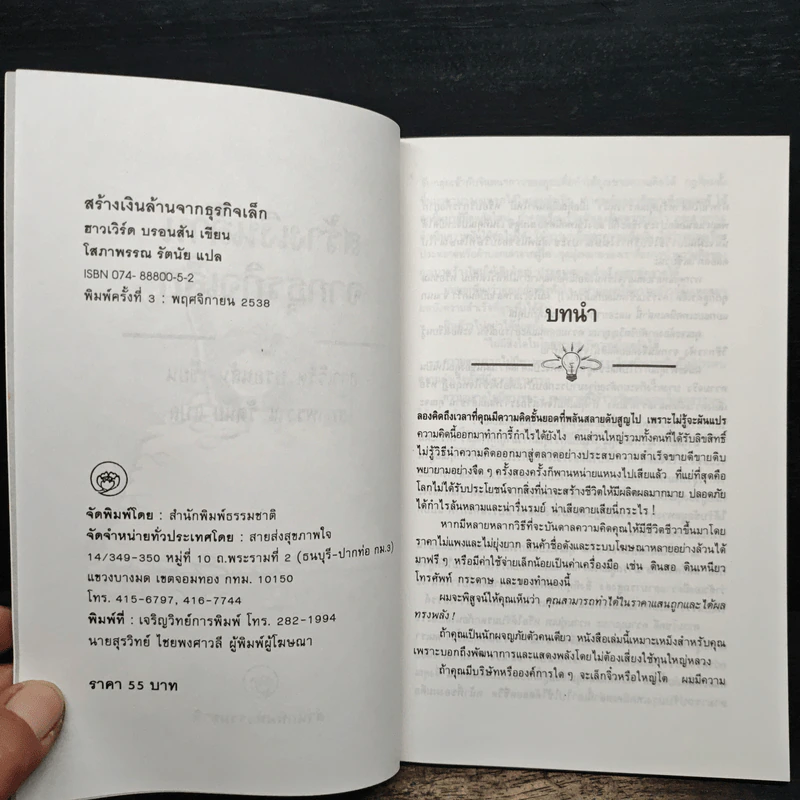 สร้างเงินล้านจากธุรกิจเล็ก
ฮาวเวิร์ด บรอนสัน เขียน
โสภาพรรณ รัตนัย แปล
ISBN 074- 88800-5-2
พิมพ์ครั้งที่ 3 : พฤศจิกายน 2538
จัดพิมพ์โดย : สำนักพิมพ์ธรรมชาติ
จัดจำหน่ายทั่วประเทศโดย : สายส่งสุขภาพใจ
14/349-350 หมู่ที่ 10 ถ.พระรามที่ 2 (ธนบุรี-ปากท่อ กม.3)
แขวงบางมด เขตจอมทอง กทม. 10150
โทร. 415-6797, 416-7744
พิมพ์ที่ : เจริญวิทย์การพิมพ์ โทร. 282-1994
นายสุรวิทย์ ไชยพงศาวลี ผู้พิมพ์ผู้โฆษณา
ราคา 55 บาท
บทนำ
ลองคิดถึงเวลาที่คุณมีความคิดชั้นยอดที่พลันสลายดับสูญไป เพราะไม่รู้จะผันแปร
ความคิดนี้ออกมาทำกำรี้กำไรได้ยังไง คนส่วนใหญ่รวมทั้งคนที่ได้รับลิขสิทธิ์
ไม่รู้วิธีนำความคิดออกมาสู่ตลาดอย่างประสบความสำเร็จขายดีขายดิบ
พยายามอย่างจืด ๆ ครั้งสองครั้งก็พานหน่ายแหนงไปเสียแล้ว ที่แย่ที่สุดคือ
โลกไม่ได้รับประโยชน์จากสิ่งที่น่าจะสร้างชีวิตให้มีผลิตผลมากมาย ปลอดภัย
ได้กำไรล้นหลามและน่ารื่นรมย์ น่าเสียดายเสียนี่กระไร !
หากมีหลายหลากวิธีที่จะบันดาลความคิดคุณให้มีชีวิตชีวาขึ้นมาโดย
ราคาไม่แพงและไม่ยุ่งยาก สินค้าชื่อดังและระบบโฆษณาหลายอย่างล้วนได้
มาฟรี ๆ หรือมีค่าใช้จ่ายเล็กน้อยเป็นค่าเครื่องมือ เช่น ดินสอ ดินเหนียว
โทรศัพท์ กระดาษ และของทำนองนี้
ผมจะพิสูจน์ให้คุณเห็นว่า คุณสามารถทำได้ในราคาแสนถูกและได้ผล
ทรงพลัง !
ถ้าคุณเป็นนักผจญภัยตัวคนเดียว หนังสือเล่มนี้เหมาะเหม็งสำหรับคุณ
เพราะบอกถึงพัฒนาการและแสดงพลังโดยไม่ต้องเสี่ยงใช้ทุนใหญ่หลวง
ถ้าคุณมีบริษัทหรือองค์การใด ๆ จะเล็กจิ๋วหรือใหญ่โต ผมมีความ